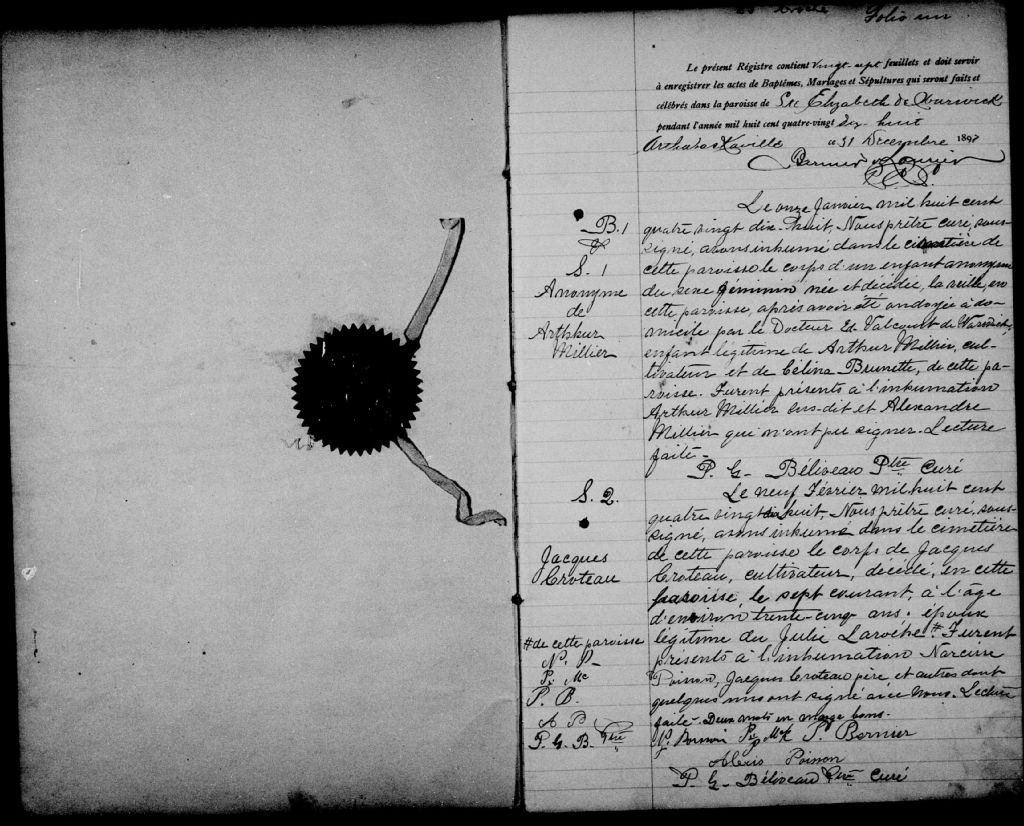 Folio un
Le présent Régistre contient vingt-sept feuillets et doit servir
à enregistrer les actes de Baptêmes, Mariages et Sépultures qui seront faits et
célébrés dans la paroisse de Ste Elizabeth de Warwick
pendant l'année mil huit cent quatre-vingt dix huit
Arthabaskaville ce 31 Décembre 1897
P.C.S.
B. 1
&
S. 1
Anonyme
de
Arthkur
Millier
Le onze Janvier mil huit cent
quatre vingt dix-huit, Nous prêtre curé, sous-
signé, avons inhumé dans le cimetière de
cette paroisse le corps d'un enfant anonyme
du sexe féminin née et décédée, la veille, en
cette paroisse, après avoir été ondoyée à do-
micile par le Docteur Ed. Valcourt de Warwick,
enfant légitime de Arthur Millier, cul-
tivateur et de Célina Brunette, de cette pa-
roisse. Furent présents à l'inhumation
Arthur Millier sus-dit et Alexandre
Millier qui n'ont pu signer. Lecture
faite-
P. G- Béliveau Ptre Curé
S. 2.
Jacques
Croteau
Le neuf Février mil huit cent
quatre vingt dix huit, Nous prêtre curé, sous-
signé, avons inhumé dans le cimetière
de cette paroisse le corps de Jacques
Croteau, cultivateur, décédé, en cette
paroisse, le sept courant, à l'âge
d'environ trente-cinq ans. époux
légitime du Julie Laroche # Furent
présents à l'inhumation Narcisse
Poisson, Jacques Croteau père et autres dont
quelques uns ont signé avec nous. Lecture
faite- Deux mots en marge bons.
# de cette paroisse
N. P-
P. Mc
P. B.
A P
P. G. B. Ptre
P. Bernier
Alexis Poisson
P. G- Béliveau Ptre Curé